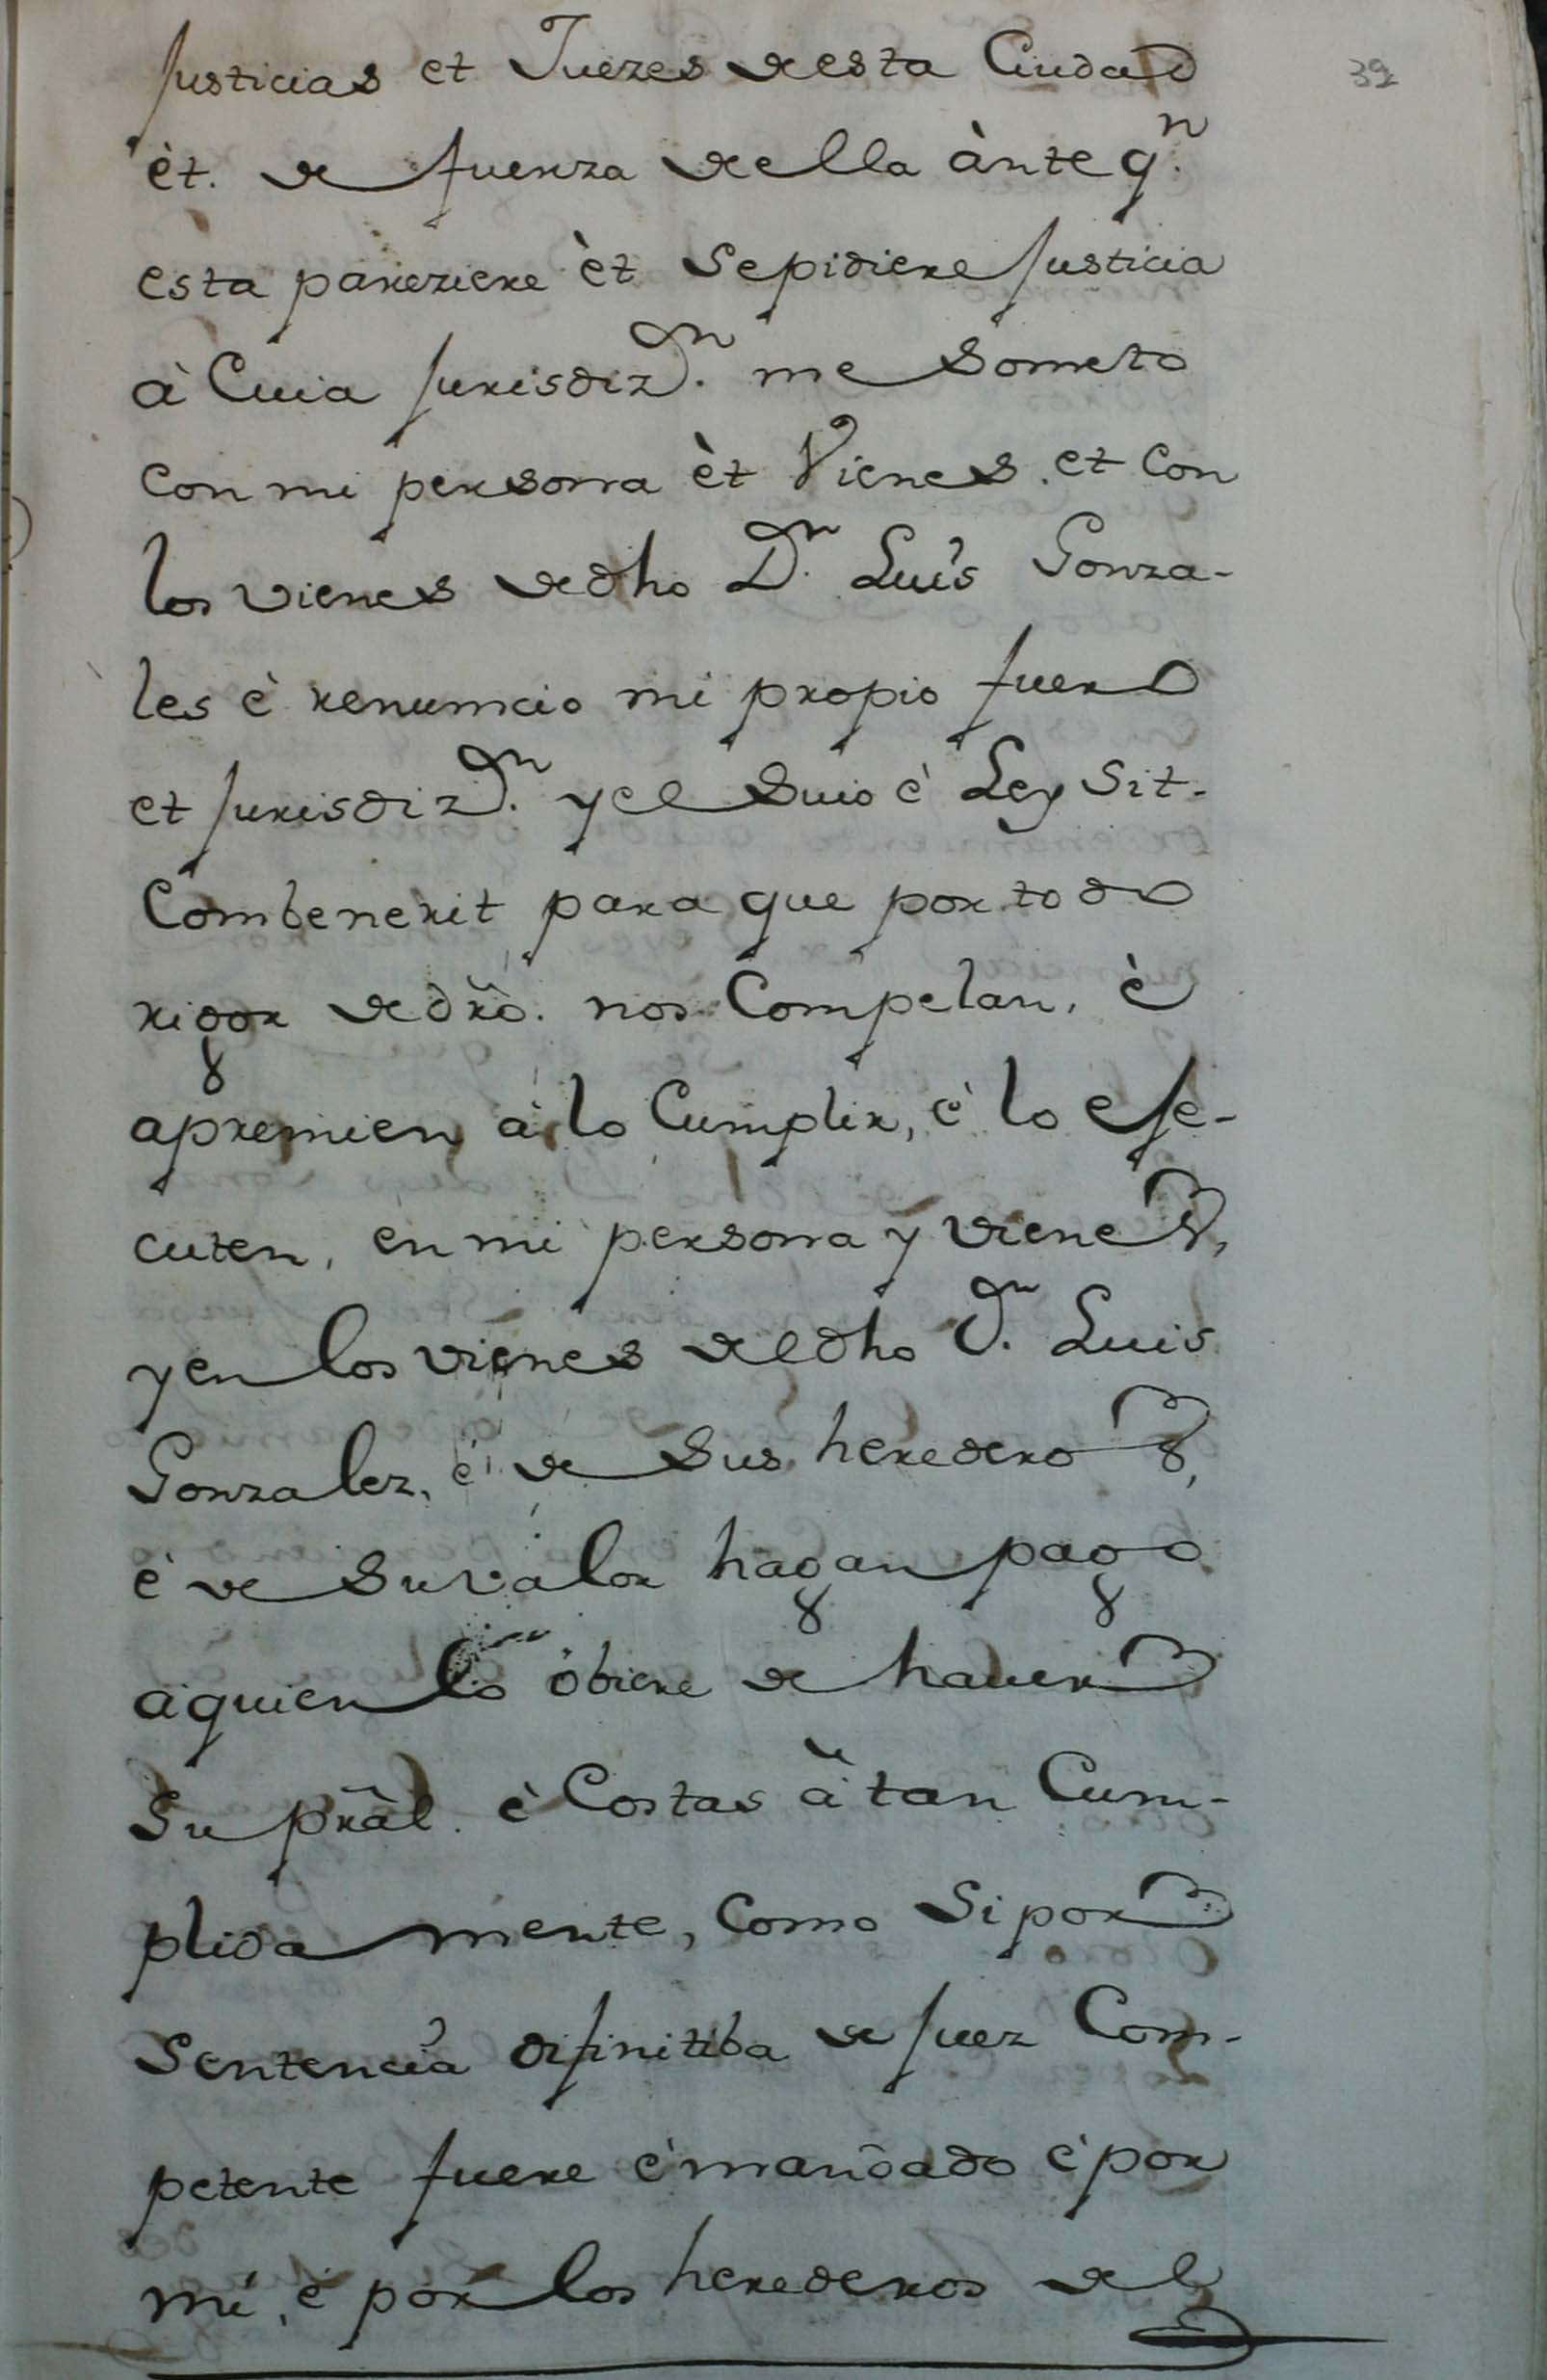 Justicias et Juezes desta Ciudad
39
èt. de fuerza della ànte q.n
esta pareziere èt Sepidiere Justicia
à Cuia Jurisdiz.on me Someto
con mi persona èt Vienes. et con
los vienes dedho D.n Luis Gonza-
les è renumcio mi propio fuero
et Jurisdiz.on y el Suio è Ley Sit-
Combenerit para que por todo
rigor dedrõ. nos Compelan, è
apremien à lo Cumplir, è lo eje-
cuten, en mi persona y vienes,
y en los vienes deldho D.n Luis
Gonzalez, è de Sus herederos,
è de Su valor hagan pago
aquien lo obiere de haver
Su prãl. è Costas à tan Cum-
plida mente, Como Si por
Sentencia difinitiba de Juez Com-
petente fuere è mandado è por
mi, è por los herederos del